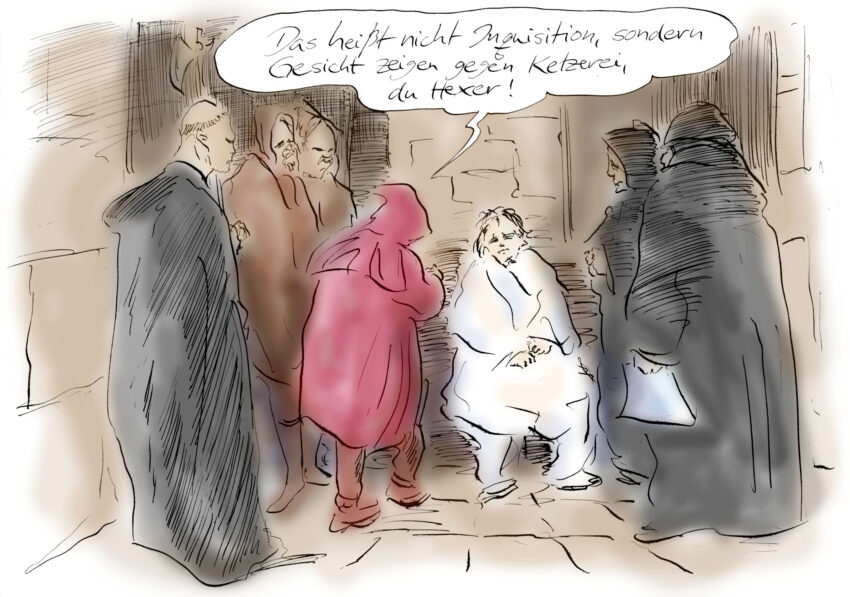 Das heißt nicht Inquisition, sondern
Gesicht zeigen gegen Ketzerei,
du Hexer!